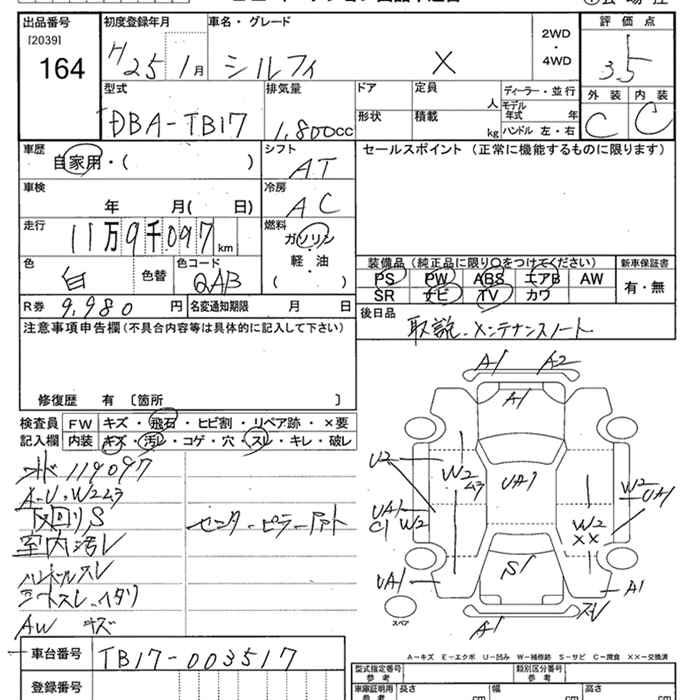 出品番号
[2039]
164
初度登録年月
H25 1月
車名・グレード
シルフィ X
2WD
・
4WD
評価点
3.5
外装 内装
C C
型式
DBA-TB17
排気量
1,800cc
ドア
形状
定員
人
積載
kg
ディーラー・並行
モデル
年式 年
ハンドル 左・右
車歴
自家用・( )
シフト
AT
セールスポイント (正常に機能するものに限ります)
車検
年 月( 日)
冷房
AC
走行
11万9千097km
燃料
ガソリン
軽・油
( )
色
白
色替
色コード
QAB
装備品(純正品に限り○をつけてください)
PS PW ABS エアB AW
SR ナビ TV カワ
新車保証書
有・無
R券 9,980 円
名変通知期限 月 日
後日品
取説・メンテナンスノート
注意事項申告欄(不具合内容等は具体的に記入して下さい)
修復歴 有 〔箇所 〕
検査員
記入欄
FW キズ・飛石・ヒビ割・リペア跡・×要
内装 キズ・汚レ・コゲ・穴・スレ・キレ・破レ
119097
A-U・W2ム3
下回りS
室内汚レ
ハンドルスレ
シートスレ・イタリ
AW キズ
センターピラー
A1 A2
A1
U2
W2
ム3
UA1
W2
UA1
UA1
C1 W2
W2
××
UA1
S1
A1
スレ
A1
スペア
A-キズ E-エクボ U-凹み W-補修跡 S-サビ C-腐食 XX-交換済
車台番号 TB17-003517
登録番号
型式指定番号
参考
類別区分番号
参考
車庫証明用
参考
長さ cm
幅 cm
高さ cm